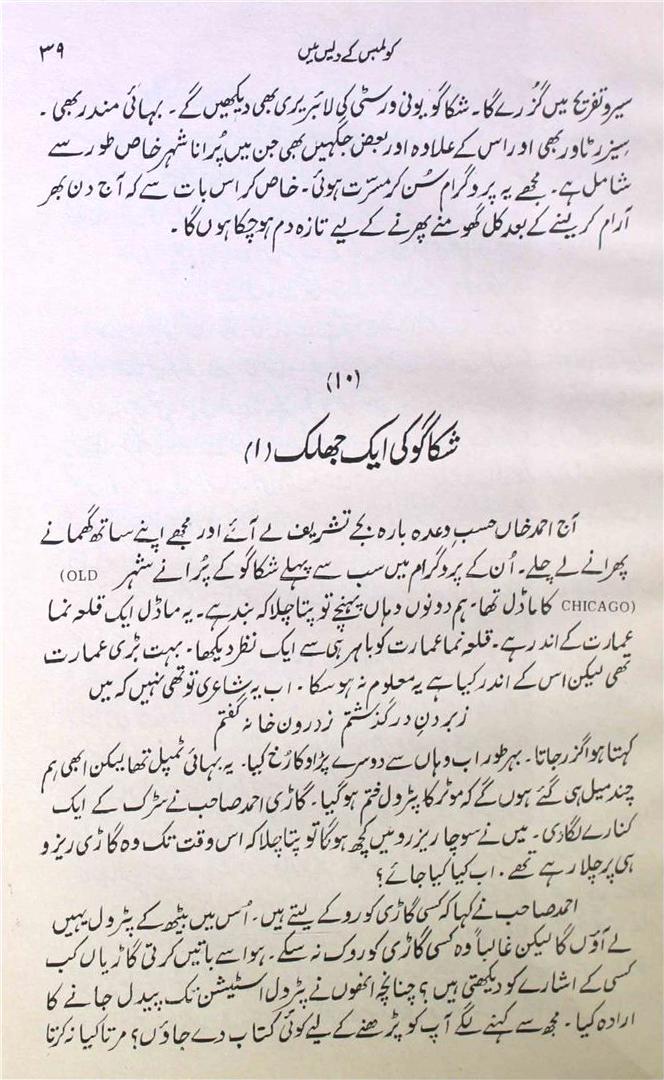 کولمبس کے دیس میں ۳۹
سیر و تفریح میں گزرے گا۔ شکاگو یونی ورسٹی کی لائبریری بھی دیکھیں گے۔ بہائی مندر بھی۔
سیئرز ٹاور بھی اور اس کے علاوہ اور بعض جگہیں بھی جن میں پُرانا شہر خاص طور سے
شامل ہے۔ مجھے یہ پروگرام سُن کر مسرّت ہوئی۔ خاص کر اس بات سے کہ آج دن بھر
آرام کرلینے کے بعد کل گھومنے پھرنے کے لیے تازہ دم ہوچکا ہوں گا۔
(۱۰)
شکاگو کی ایک جھلک (۱)
آج احمد خاں حسبِ وعدہ بارہ بجے تشریف لے آئے اور مجھے اپنے ساتھ گھمانے
پھرانے لے چلے۔ اُن کے پروگرام میں سب سے پہلے شکاگو کے پُرانے شہر (OLD
CHICAGO) کا ماڈل تھا۔ ہم دونوں وہاں پہنچے تو پتا چلا کہ بند ہے۔ یہ ماڈل ایک قلعہ نما
عمارت کے اندر ہے۔ قلعہ نما عمارت کو باہر ہی سے ایک نظر دیکھا۔ بہت بڑی عمارت
تھی لیکن اس کے اندر کیا ہے یہ معلوم نہ ہوسکا۔ اب یہ شاعری تو تھی نہیں کہ میں
زبردنِ در گذشتم زدرون خانہ گفتم
کہتا ہوا گزر جاتا۔ بہرطور اب وہاں سے دوسرے پڑاو کا رُخ کیا۔ یہ بہائی ٹمپل تھا لیکن ابھی ہم
چند میل ہی گئے ہوں گے کہ موٹر کا پٹرول ختم ہوگیا۔ گاڑی احمد صاحب نے سڑک کے ایک
کنارے لگادی۔ میں نے سوچا ریزرو میں کچھ ہوگا تو پتا چلا کہ اس وقت تک وہ گاڑی ریزرو
ہی پر چلا رہے تھے۔ اب کیا کیا جائے؟
احمد صاحب نے کہا کہ کسی گاڑی کو روکے لیتے ہیں۔ اُس میں بیٹھ کے پٹرول یہیں
لے آؤں گا لیکن غالباً وہ کسی گاڑی کو روک نہ سکے۔ ہوا سے باتیں کرتی گاڑیاں کب
کسی کے اشارے کو دیکھتی ہیں؟ چنانچہ انھوں نے پٹرول اسٹیشن تک پیدل جانے کا
ارادہ کیا۔ مجھ سے کہنے لگے آپ کو پڑھنے کے لیے کوئی کتاب دے جاؤں؟ مرتا کیا نہ کرتا